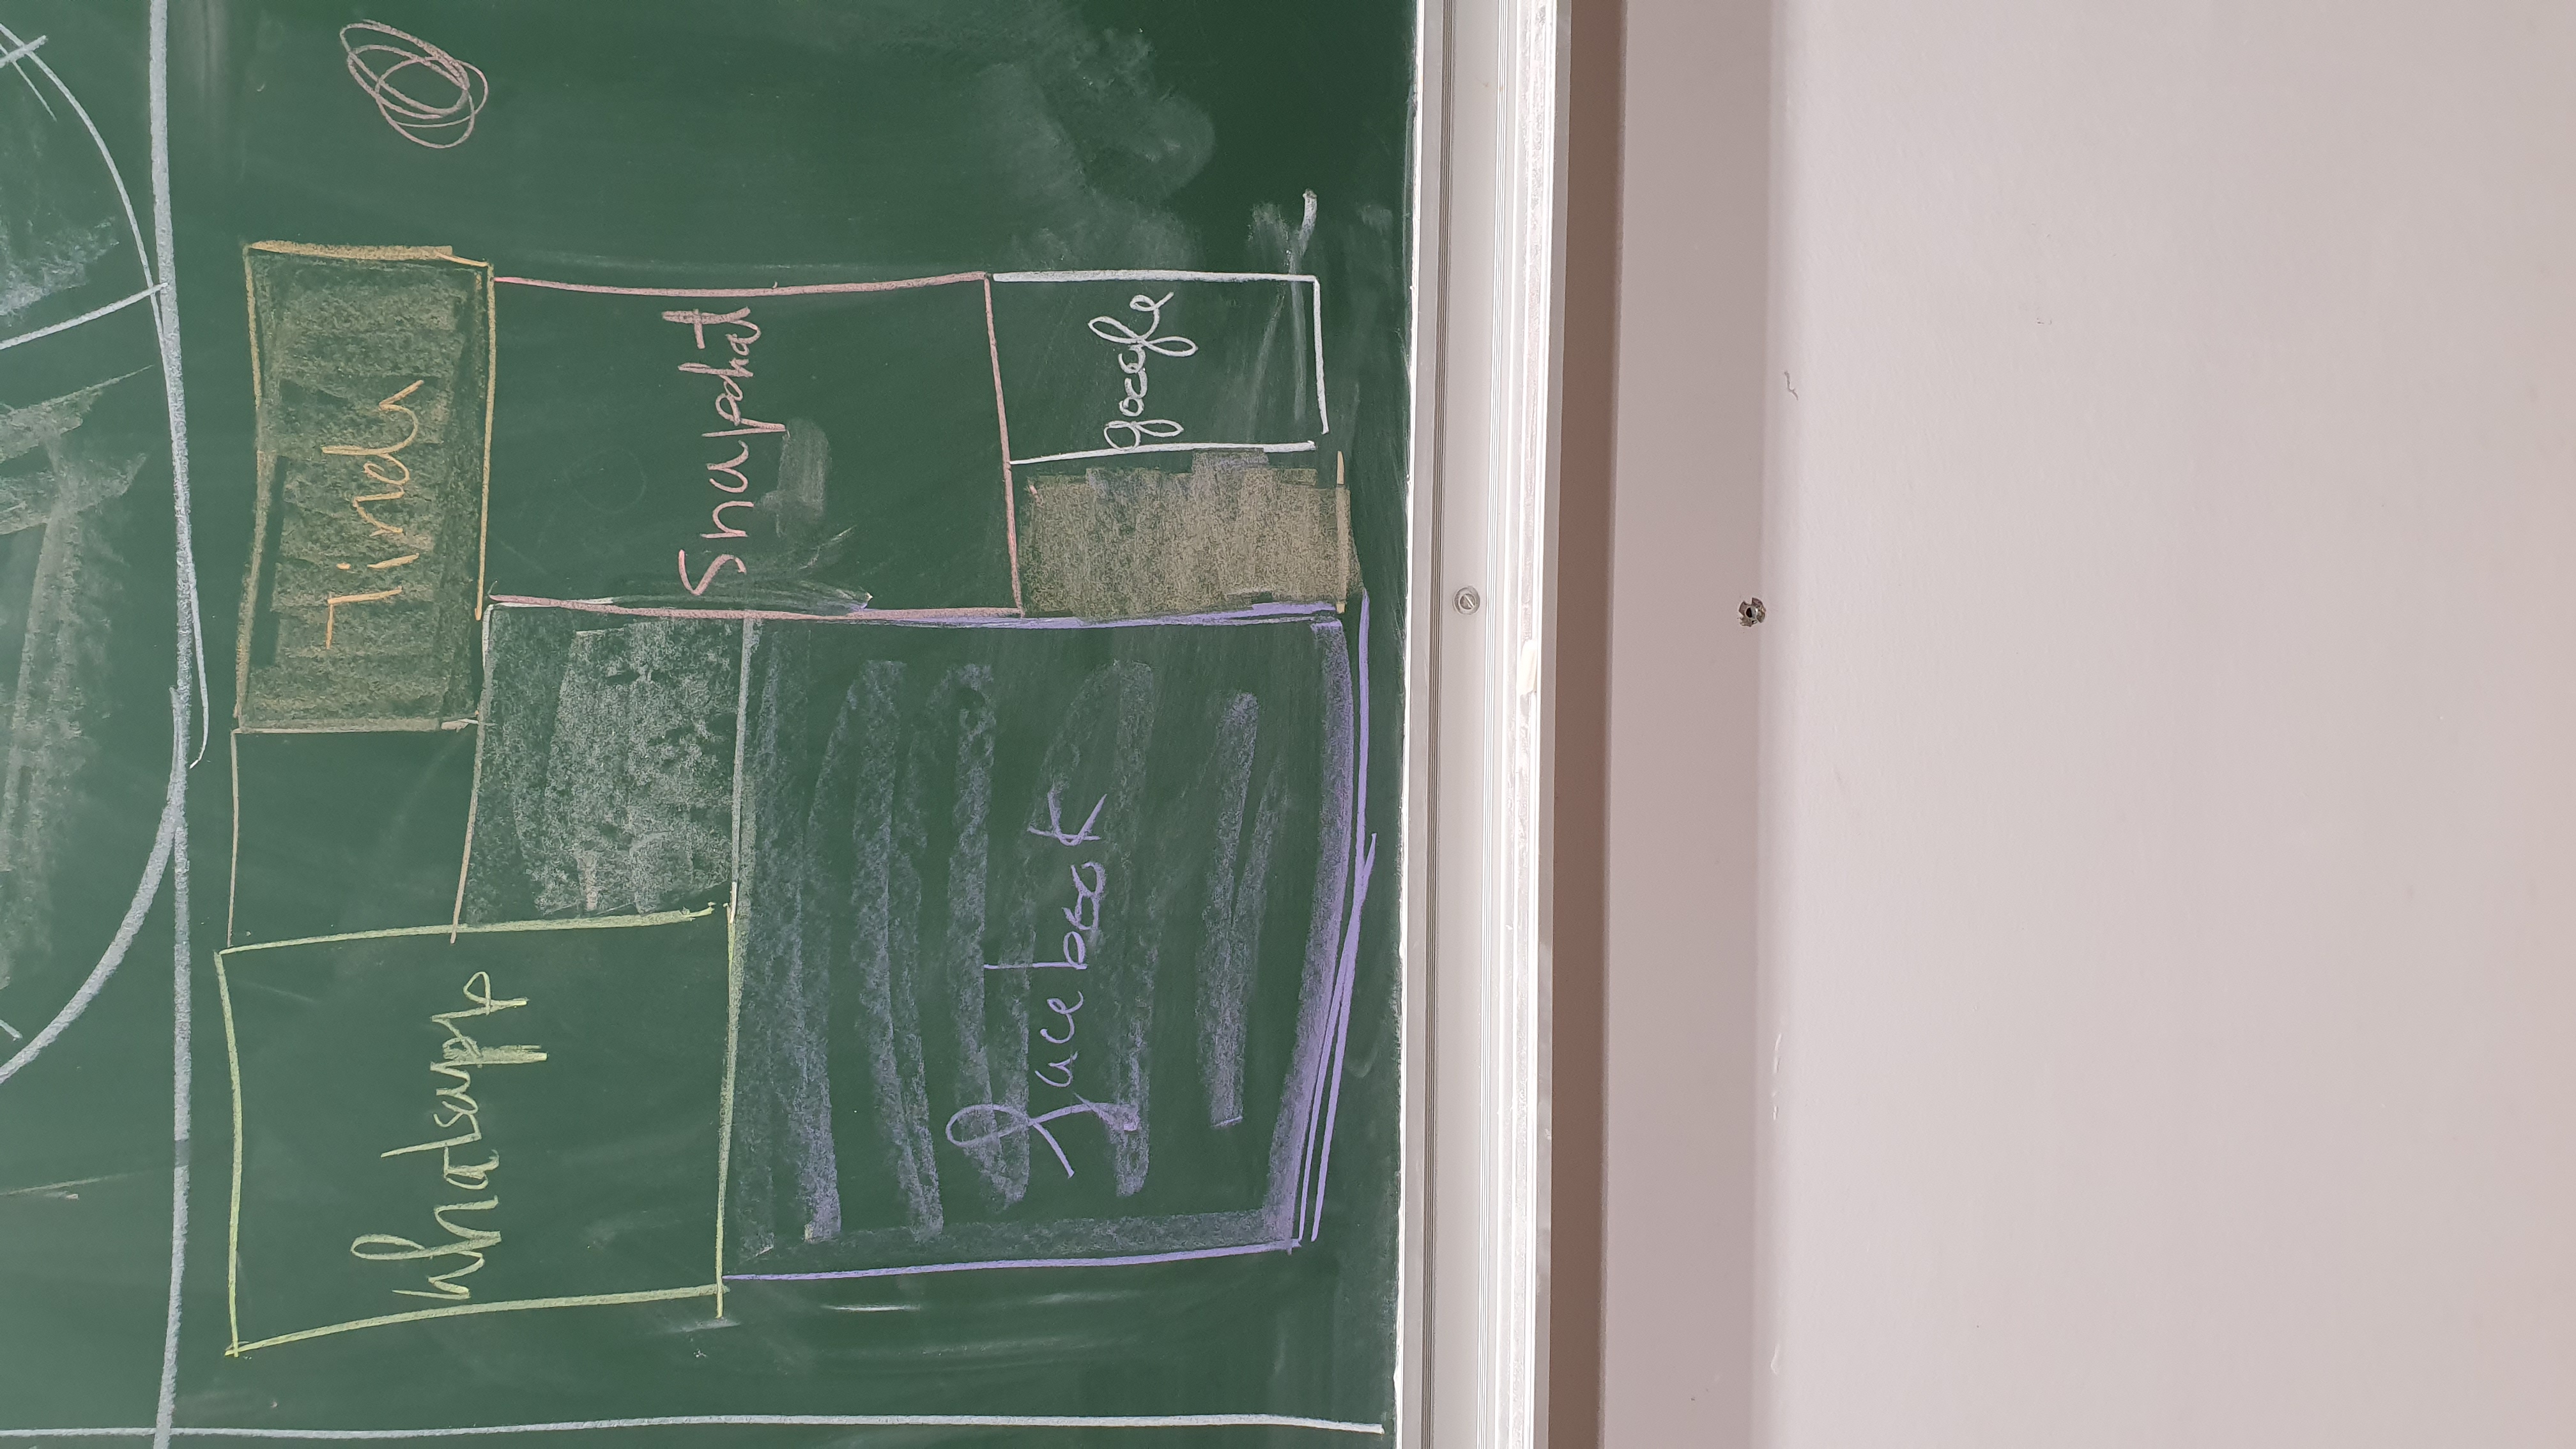 Whatsapp
Tinder
Snapchat
facebook
google